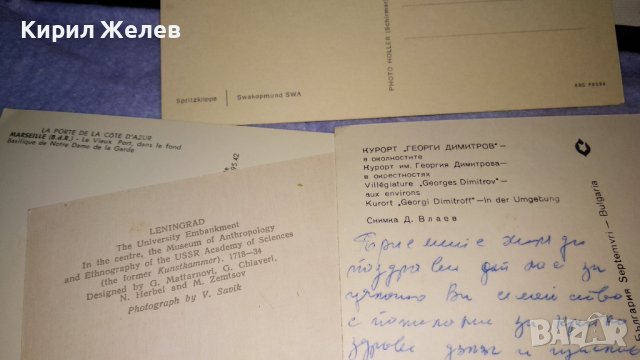 Кирил Жеков
PHOTO HOLLER (Schirmer)
Spritzklippe
Swakopmund SWA
LA PORTE DE LA CÔTE D'AZUR
MARSEILLE (B.d.R.) - Le Vieux Port, dans le fond
Basilique de Notre Dame de la Garde
95.42
LENINGRAD
The University Embankment
In the centre, the Museum of Anthropology
and Ethnography of the USSR Academy of Sciences
(the former Kunstkammer), 1718—34
Designed by G. Mattarnovi, G. Chiaveri,
N. Herbel and M. Zemtsov
Photograph by V. Savik
КУРОРТ „ГЕОРГИ ДИМИТРОВ" —
в околностите
Курорт им. Георгия Димитрова —
в окрестностях
Villégiature „Georges Dimitrov" —
aux environs
Kurort „Georgi Dimitroff" — in der Umgebung
Снимка Д. Влаев
Приемете
поздрави от нас за
Ви семейства
с пожелания за
здраве дълъг и
България Septemvri — Bulgaria
bazar.bg